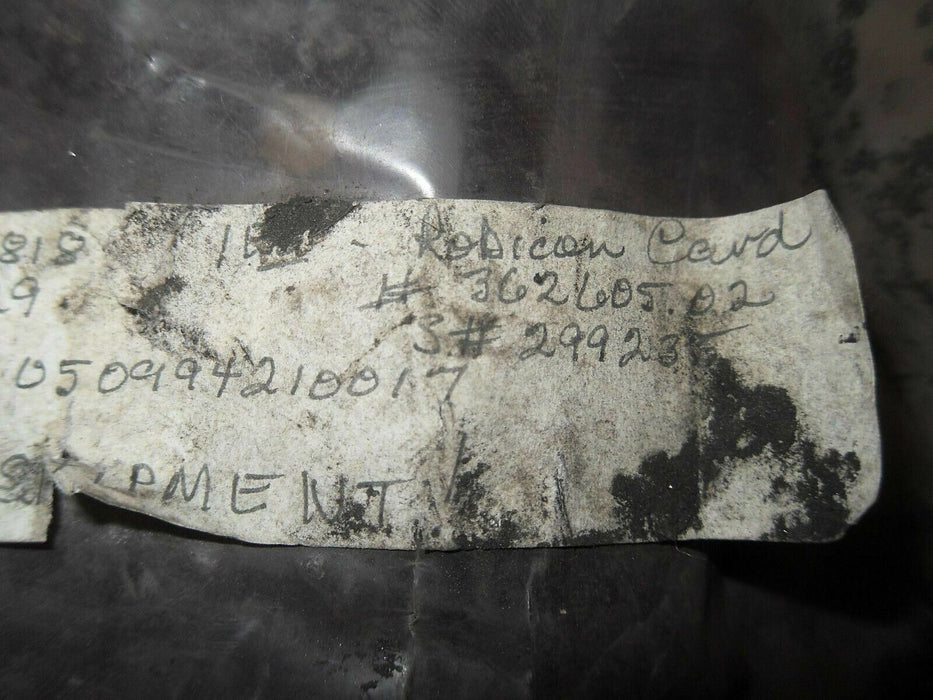 818 - Robicon Card
19 # 362605.02
S# 299235
050994210017
IPMENT